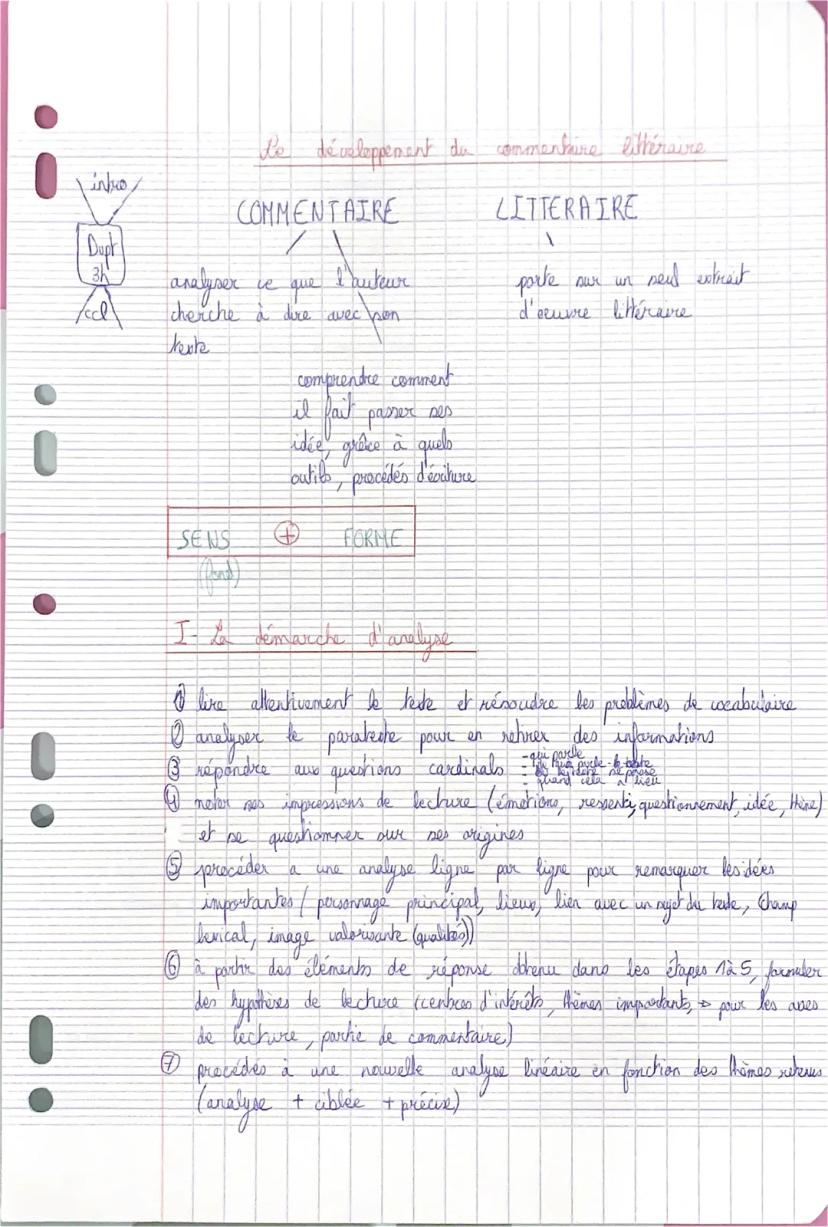 Le développement du commentaire littéraire
intro
Dvpt
3h
ccl
COMMENTAIRE
LITTERAIRE
analyser ce que l'auteur
cherche à dire avec son
texte
porte sur un seul extrait
d'oeuvre littéraire
comprendre comment
il fait passer ses
idée, grâce à quels
outils, procédés d'écriture
SENS + FORME
(fond)
I- La démarche d'analyse
① lire attentivement le texte et résoudre les problèmes de vocabulaire
② analyser le paratexte pour en retirer des informations
③ répondre aux questions cardinals
- qui parle
- de quoi parle le texte
- quand cela a lieu
④ noter ses impressions de lecture (émotions, ressenti, questionnement, idée, thème)
et se questionner sur ses origines
⑤ procéder a une analyse ligne par ligne pour remarquer les idées
importantes (personnage principal, lieux, lien avec un sujet du texte, champ
lexical, image valorisante (qualités))
⑥ à partir des éléments de réponse obtenu dans les étapes 1 à 5, formuler
des hypothèses de lecture (centres d'intérêts, thèmes importants, → pour les axes
de lecture, partie de commentaire)
⑦ procédés à une nouvelle analyse linéaire en fonction des thèmes retenus
(analyse + ciblée + précise)